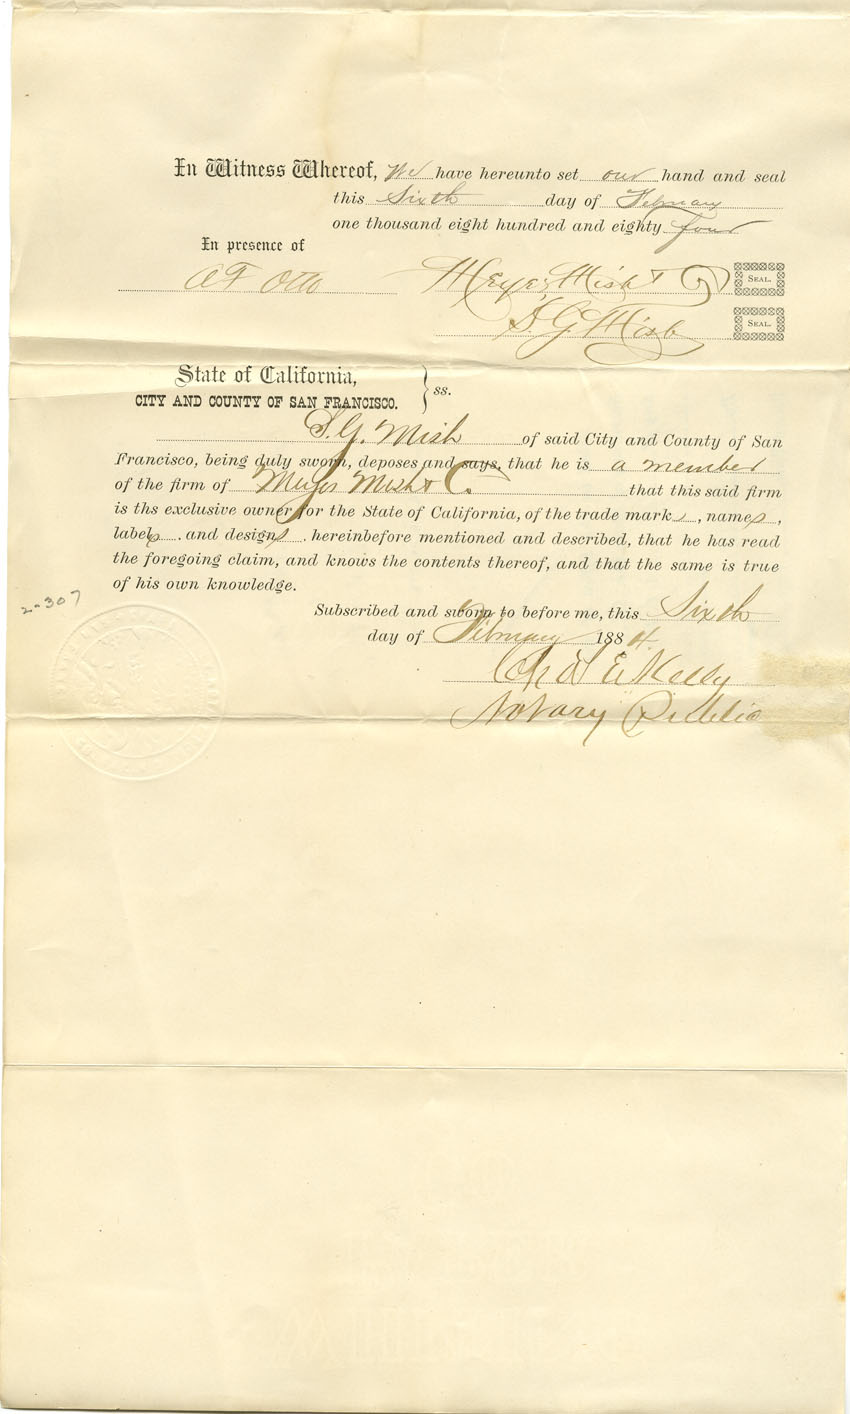 In Witness Whereof, We have hereunto set our hand and seal
this Sixth day of February
one thousand eight hundred and eighty four
In presence of
A F Otto Meyer Mish & Co SEAL.
S. G. Mish SEAL.
State of California,
CITY AND COUNTY OF SAN FRANCISCO. } ss.
S. G. Mish of said City and County of San
Francisco, being duly sworn, deposes and says, that he is a member
of the firm of Meyer Mish & Co. that this said firm
is ths exclusive owner for the State of California, of the trade marks, names,
labels. and designs. hereinbefore mentioned and described, that he has read
the foregoing claim, and knows the contents thereof, and that the same is true
of his own knowledge.
2-307
Subscribed and sworn to before me, this Sixth
day of February 1884.
Chas E. Kelly
Notary Public